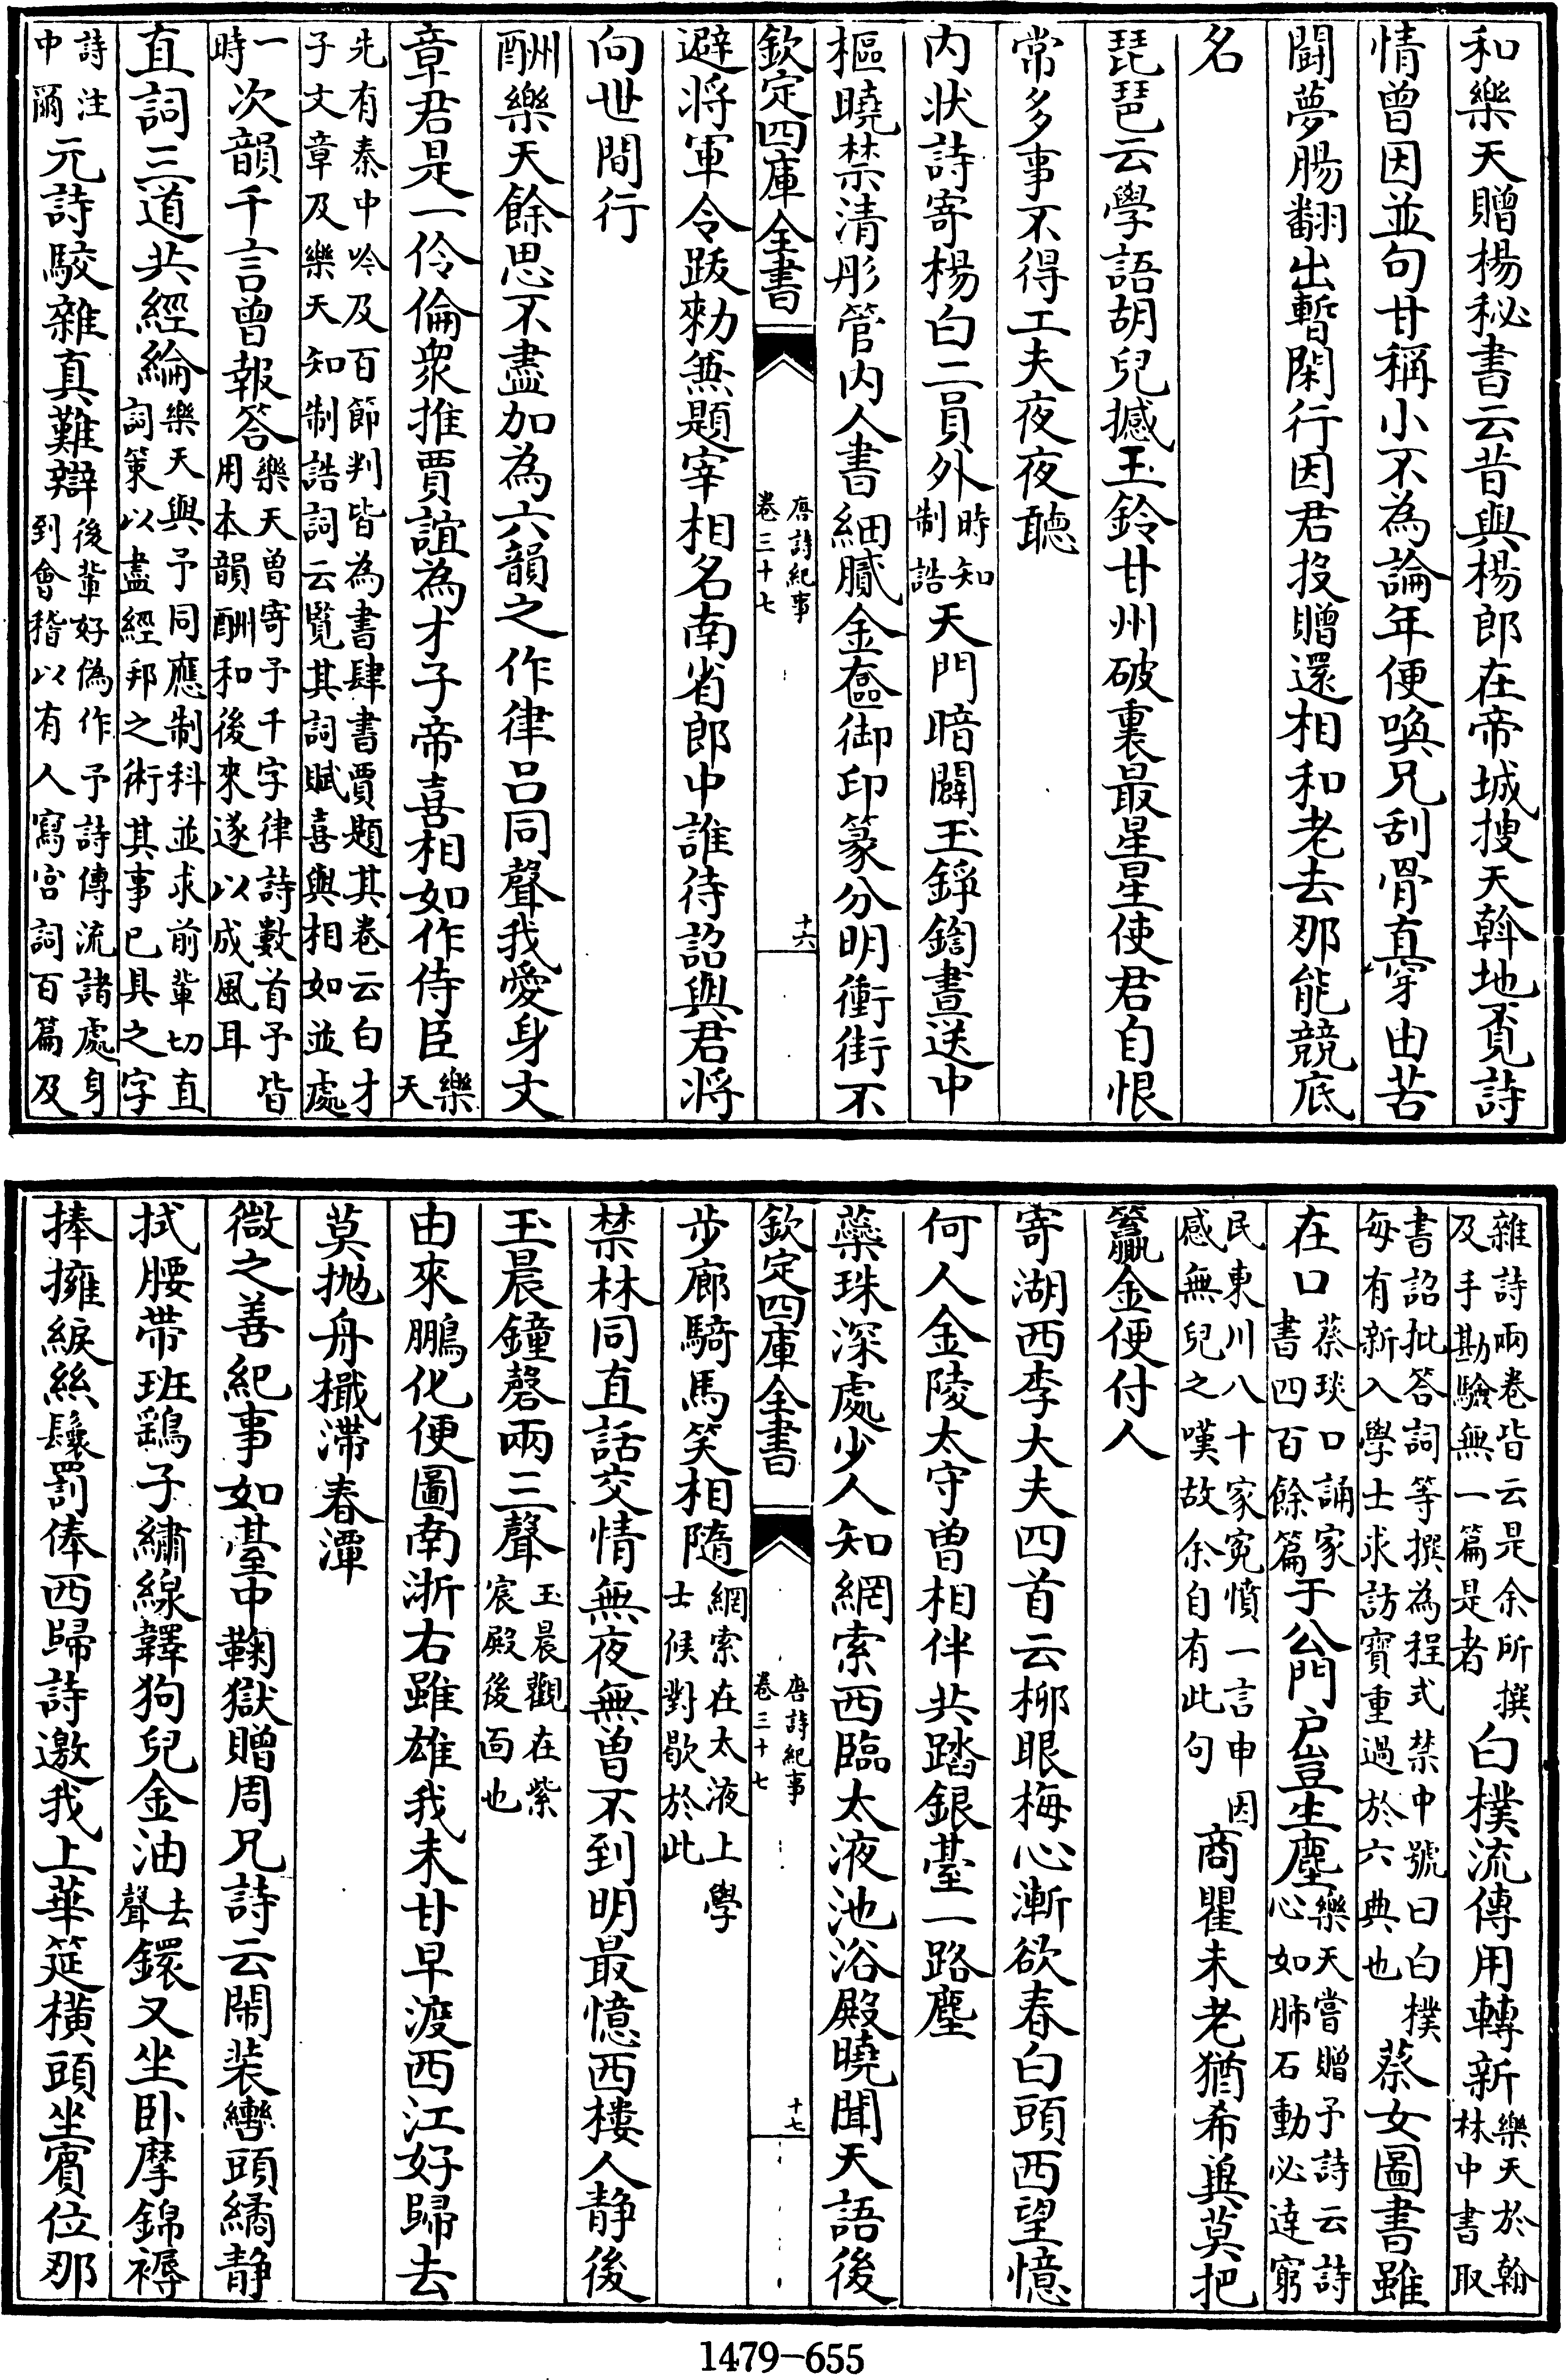 和樂天贈楊秘書云昔與楊郎在帝城搜天斡地覔詩
情曽因並句甘稱小不為論年便喚兄刮骨直穿由苦
鬪夢腸翻出暫閑行因君投贈還相和老去那能競底
名
琵琶云學語胡兒撼玉鈴甘州破裏最星星使君自恨
常多事不得工夫夜夜聽
内狀詩寄楊白二員外時知制誥天門暗闢玉錚鎗晝送中
樞曉禁清彤管内人書細膩金奩御印篆分明衝街不
欽定四庫全書
唐詩紀事
卷三十七
十六
避將軍令跋勅兼題宰相名南省郎中誰待詔與君將
向世間行
酬樂天餘思不盡加為六韻之作律吕同聲我愛身文
章君是一伶倫衆推賈誼為才子帝喜相如作侍臣樂天
先有秦中吟及百節判皆為書肆書賈題其卷云白才
子文章及樂天知制誥詞云覽其詞賦喜與相如並處
一時次韻千言曽報答樂天曽寄予千字律詩數首予皆
用本韻酬和後來遂以成風耳
直詞三道共經綸樂天與予同應制科並求前輩切直
詞策以盡經邦之術其事已具之字
詩注中爾元詩駮雜真難辯後輩好偽作予詩傳流諸處身
到會稽以有人寫宫詞百篇及
雜詩兩卷皆云是余所撰
及手勘驗無一篇是者白樸流傳用轉新樂天於翰
林中書取
書詔批答詞等撰為程式禁中號曰白樸
每有新入學士求訪寳重過於六典也蔡女圖書雖
在口蔡琰口誦家書四百餘篇于公門戸豈生塵樂天嘗贈予詩云詩
心如肺石動必達窮
民東川八十家寃憤一言申因
感無兒之嘆故余自有此句商瞿未老猶希興莫把
籯金便付人
寄湖西李大夫四首云栁眼梅心漸欲春白頭西望憶
何人金陵太守曽相伴共踏銀臺一路塵
蘂珠深處少人知網索西臨太液池浴殿曉聞天語後
欽定四庫全書
唐詩紀事
卷三十七
十七
步廊騎馬笑相隨網索在太液上學
士候對歇於此
禁林同直話交情無夜無曽不到明最憶西樓人静後
玉晨鐘磬兩三聲玉晨觀在紫
宸殿後面也
由來鵬化便圖南浙右雖雄我未甘早渡西江好歸去
莫抛舟檝滯春潭
微之善紀事如臺中鞠獄贈周兄詩云閙装轡頭繘静
拭腰帶班鷂子繡線韝狗兒金油去聲鐶又坐卧摩錦褥
捧擁綟絲鬟罰俸西歸詩邀我上華筵横頭坐賓位那
1479-655